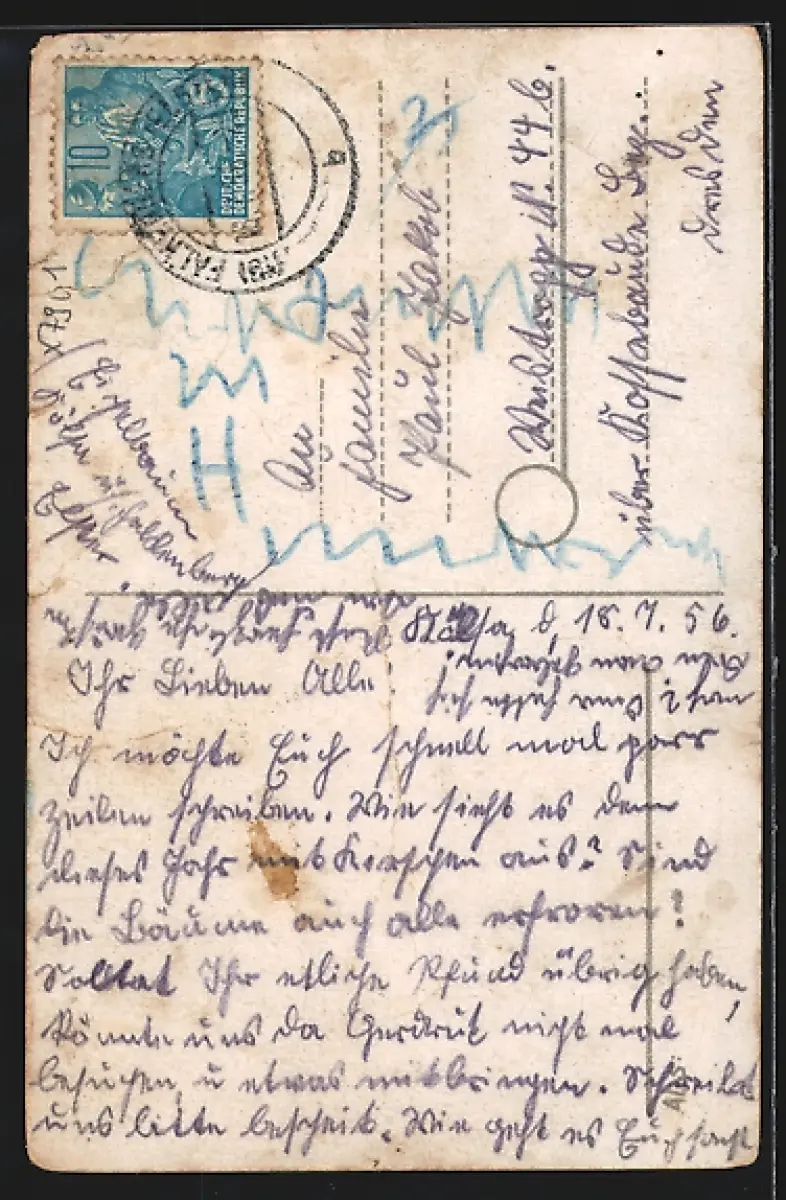 10
DEUTSCHE
DEMOKRATISCHE REPUBLIK
FALKENBERG
a
An
Familie
Paul Jakob
Weistropp N. 44 b.
über Kossebaude Bez.
Dresden
Falkenberg
Elster
d. 18. 7. 56.
Ihr Lieben Alle
Ich möchte Euch schnell mal paar
Zeilen schreiben. Wie sieht es denn
dieses Jahr mit Kirschen aus? Sind
die Bäume auch alle erfroren?
Solltet Ihr etliche Pfund übrig haben,
könnte uns da Gerdrut nicht mal
besuchen u etwas mitbringen. Schreibt
uns bitte bescheit. Wie geht es Euch sonst